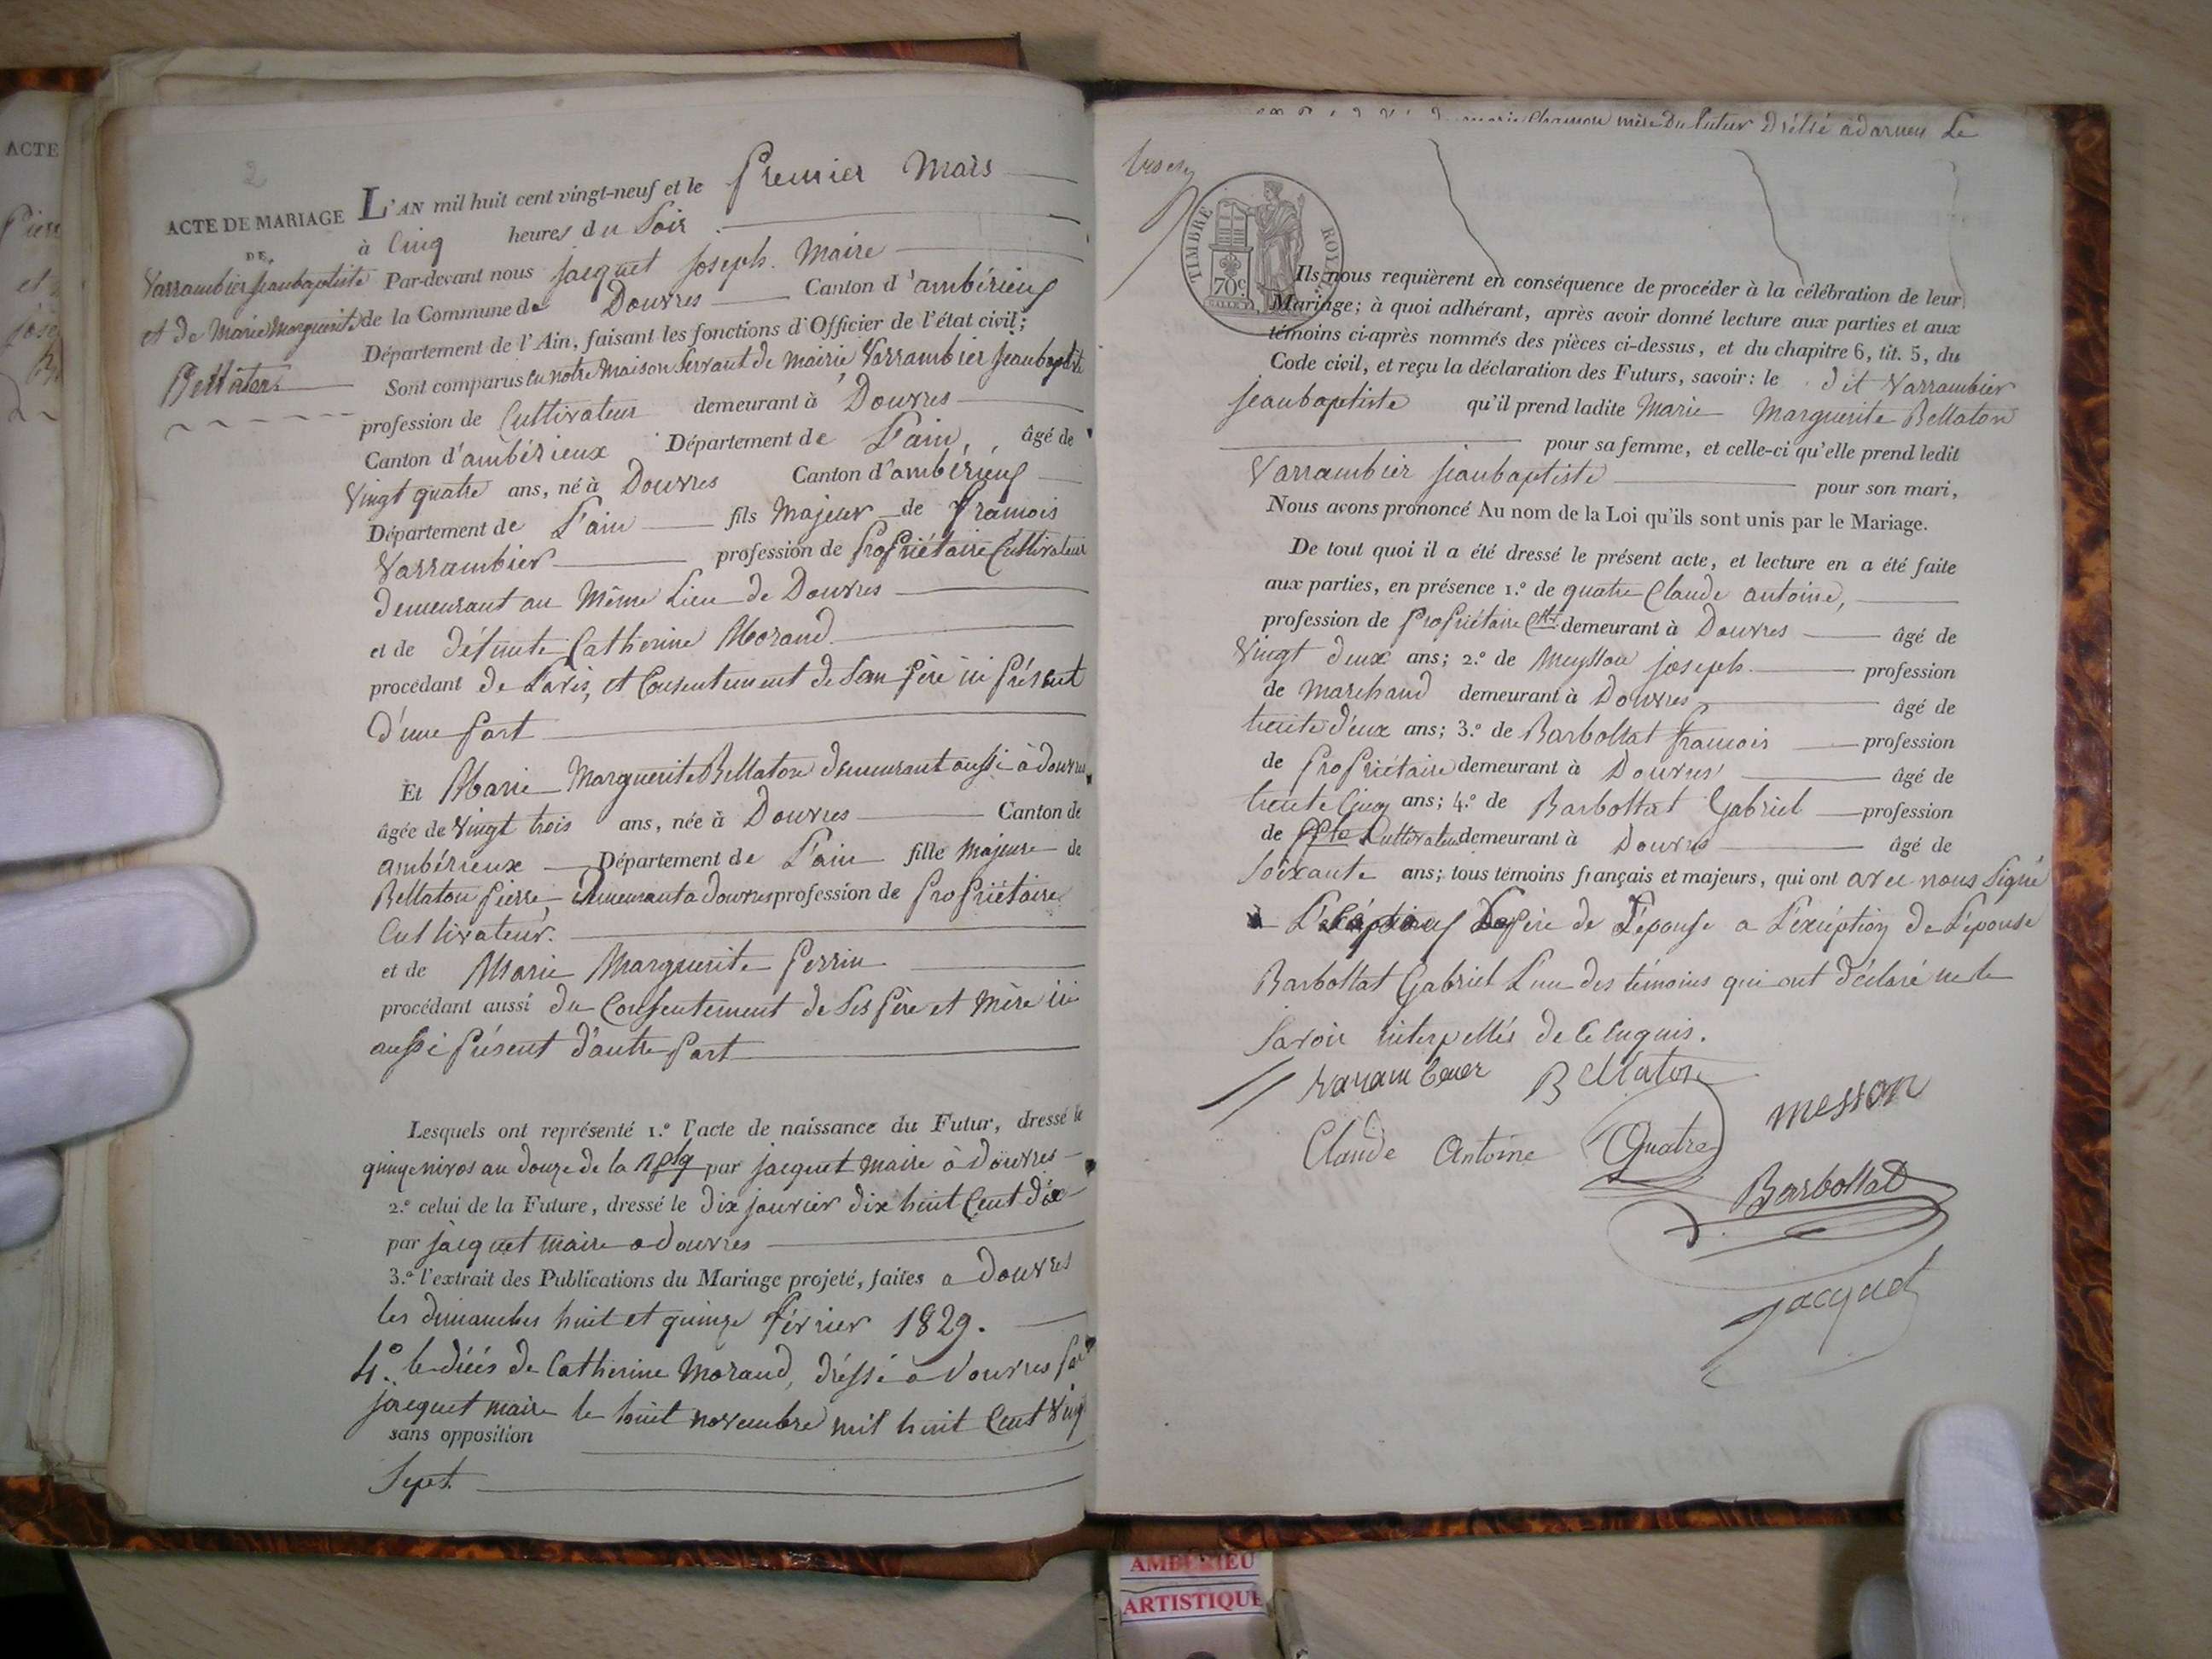 ACTE
2
ACTE DE MARIAGE
DE
Varrambier Jeanbaptiste
et de Marie Marguerite
Bellaton
L'AN mil huit cent vingt-neuf et le Premier Mars
à Cinq heures du Soir
Par-devant nous Jacquet Joseph. Maire
de la Commune de Douvres Canton d'ambérieux
Département de l'Ain, faisant les fonctions d'Officier de l'état civil;
Sont comparus en notre Maison Servant de mairie, Varrambier Jeanbaptiste
profession de Cultivateur demeurant à Douvres
Canton d'ambérieux Département de L'ain, âgé de
Vingt quatre ans, né à Douvres Canton d'ambérieux
Département de L'ain fils Majeur de françois
Varrambier profession de Propriétaire Cultivateur
demeurant au Même Lieu de Douvres
et de défunte Catherine Morand
procédant de L'avis, et Consentement de Son père ici présent
d'une part
Et Marie Marguerite Bellaton demeurant aussi à douvres
âgée de Vingt trois ans, née à Douvres Canton de
ambérieux Département de L'ain fille Majeure de
Bellaton pierre, demeurant a douvres profession de Propriétaire
Cultivateur.
et de Marie Marguerite Perrin
procédant aussi du Consentement de Ses père et Mère ici
aussi présent d'autre part
Lesquels ont représenté 1.º l'acte de naissance du Futur, dressé le
quinze nivos au douze de la Rplq par jacquet maire à Douvres
2.º celui de la Future, dressé le dix janvier dix huit Cent dix
par jacquet maire a douvres
3.º l'extrait des Publications du Mariage projeté, faites a Douvres
les dimanches huit et quinze février 1829.
4.º le décés de Catherine Morand, dréssé à Douvres par
jacquet maire le huit novembre mil huit Cent Ving
sans opposition
Sept.
marie Chamon mère Du futur Dréssé a Le
TIMBRE ROYAL
70c
Ils nous requièrent en conséquence de procéder à la célébration de leur
Mariage; à quoi adhérant, après avoir donné lecture aux parties et aux
témoins ci-après nommés des pièces ci-dessus, et du chapitre 6, tit. 5, du
Code civil, et reçu la déclaration des Futurs, savoir: le dit Varrambier
Jeanbaptiste qu'il prend ladite Marie Marguerite Bellaton
pour sa femme, et celle-ci qu'elle prend ledit
Varrambier jeanbaptiste pour son mari,
Nous avons prononcé Au nom de la Loi qu'ils sont unis par le Mariage.
De tout quoi il a été dressé le présent acte, et lecture en a été faite
aux parties, en présence 1.º de quatre Claude antoine,
profession de Propriétaire Clt. demeurant à Douvres âgé de
Vingt deux ans; 2.º de Meysson joseph profession
de Marchand demeurant à Douvres âgé de
trente deux ans; 3.º de Barbollat françois profession
de Propriétaire demeurant à Douvres âgé de
trente Cinq ans; 4.º de Barbollat Gabriel profession
de Cultivateur demeurant à Douvres âgé de
Soixante ans; tous témoins français et majeurs, qui ont avec nous Signé
père de L'épouse a L'exception de L'épouse
Barbollat Gabriel L'un des témoins qui ont déclaré ne le
Savoir interpellés de Ce Enquis.
Bellaton
messon
Claude Antoine Quatre
Barbollat
Jacquet
AMBERIEU
ARTISTIQUE